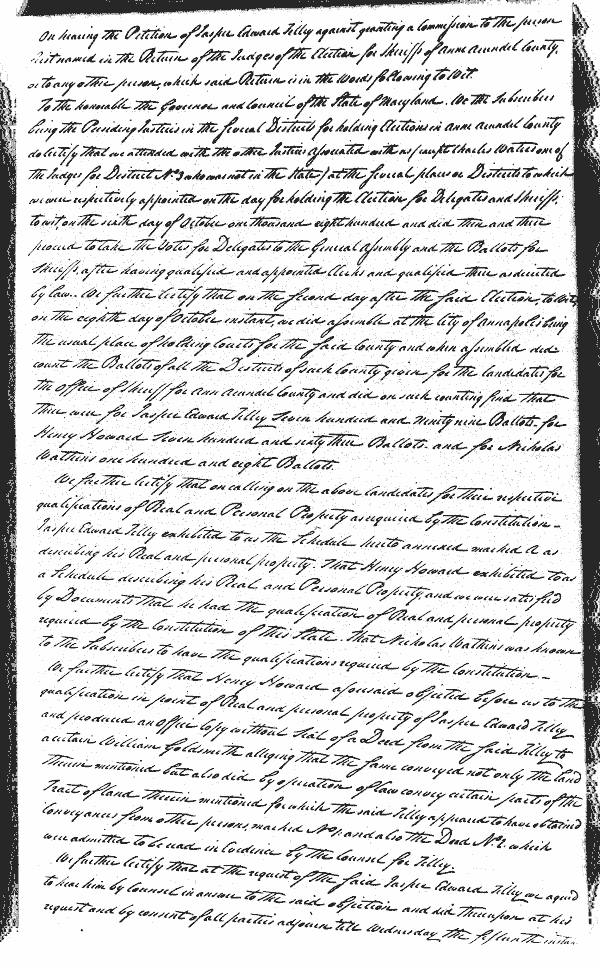 On hearing the Petition of Jasper Edward Tilly against granting a Commission to the person
first named in the Return of the Judges of the Election for Sheriffs of Anne Arundel County,
or to any other person, which said Return is in the words following to Wit.
To the honorable the Governor and Council of the State of Maryland. We the Subscribers
being the Presiding Justices in the several Districts for holding Elections in Anne Arundel County
do Certify that we attended with the other Justices associated with us (except Charles Waters one of
the Judges for District No 3 who was not in the State) at the several places or Districts to which
we were respectively appointed on the day for holding the Election for Delegates and Sheriffs;
to wit on the sixth day of October one thousand eight hundred and did then and there
proceed to take the Votes for Delegates to the General Assembly and the Ballots for
Sheriffs, after having qualified and appointed Clerks and qualified them as directed
by law. We further Certify that on the second day after the said Election, to Wit,
on the eighth day of October instant, we did assemble at the City of Annapolis being
the usual place of holding Courts for the said County and when assembled did
count the Ballots of all the Districts of such County given for the Candidates for
the office of Sheriff for Ann Arundel County and did on such counting find that
there were for Jasper Edward Tilly Seven hundred and Ninety nine Ballots for
Henry Howard Seven hundred and sixty three Ballots and for Nicholas
Watkins one hundred and eight Ballots.
We further Certify that on calling on the above Candidates for their respective
qualifications of Real and Personal Property as required by the Constitution -
Jasper Edward Tilly exhibited to us the Schedule hereto annexed marked A as
describing his Real and personal property. That Henry Howard exhibited to us
a Schedule describing his Real and Personal Property, and we were satisfied
by Documents that he had the qualification of Real and personal property
required by the Constitution of this State. That Nicholas Watkins was known
to the Subscribers to have the qualifications required by the Constitution. -
We further Certify that Henry Howard aforesaid objected before us to the
qualification in point of Real and personal property of Jasper Edward Tilly
and produced an office Copy without Seal of a Deed from the said Tilly to
a certain William Goldsmith alleging that the same conveyed not only the land
therein mentioned but also did by operation of law convey certain parts of the
Tract of land therein mentioned for which the said Tilly appeared to have obtained
Conveyances from other persons, marked No 1. and also the Deed No 2. which
were admitted to be read in Evidence by the Counsel for Tilly.
We further Certify that at the request of the said Jasper Edward Tilly we agreed
to hear him by Counsel in answer to the said objection and did thereupon at his
request and by consent of all parties adjourn till Wednesday the fifteenth instan